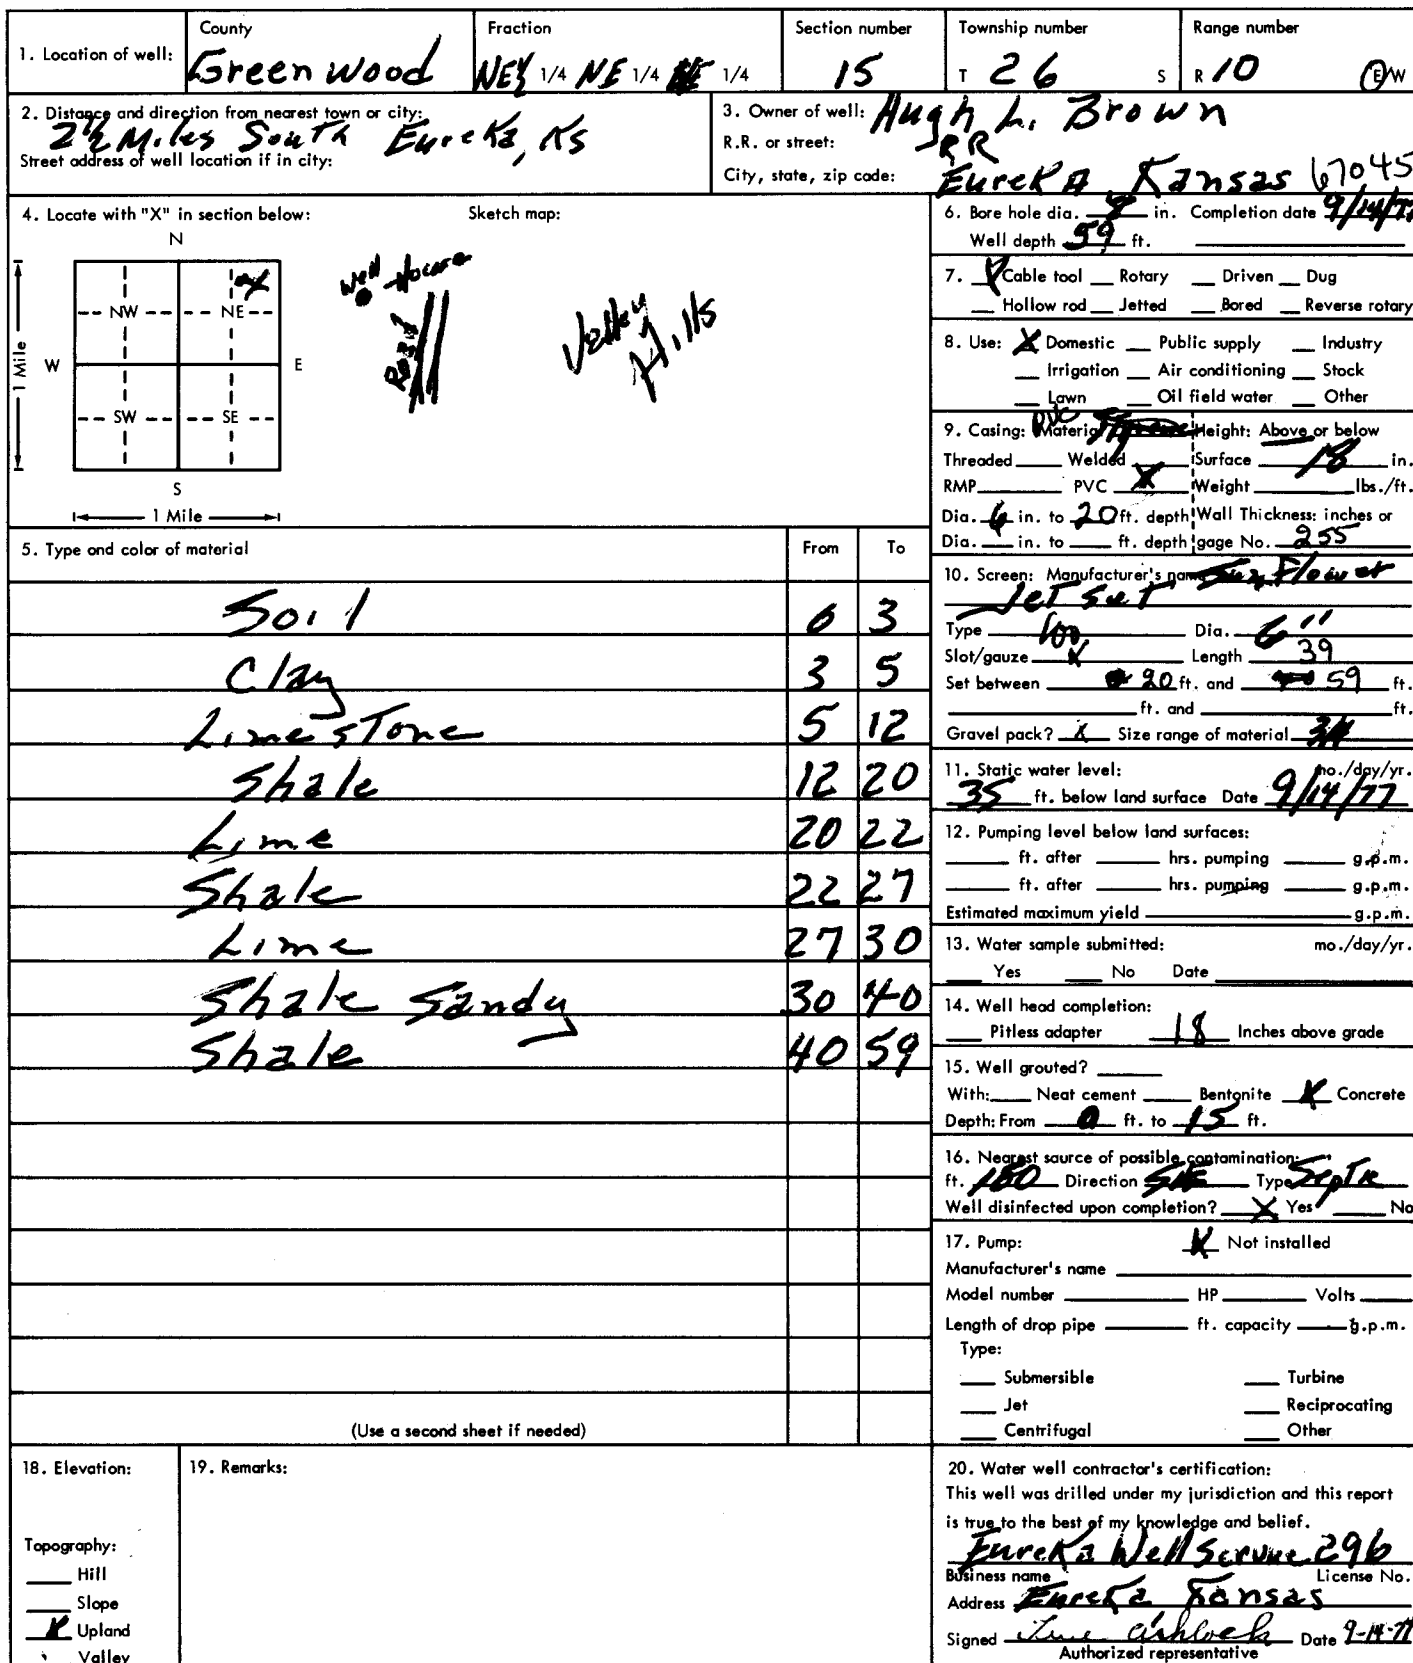 1. Location of well: County Greenwood Fraction NE 1/4 NE 1/4 NE 1/4 Section number 15 Township number T 26 S Range number R 10 E/W
2. Distance and direction from nearest town or city:
2 1/2 Miles South Eureka, Ks
Street address of well location if in city:
3. Owner of well: Hugh L. Brown
R.R. or street: RR
City, state, zip code: Eureka Kansas 67045
4. Locate with "X" in section below: Sketch map:
N
NW NE
W E
SW SE
S
1 Mile
1 Mile
X
Well House
Road
Valley
Hills
5. Type and color of material From To
Soil 0 3
Clay 3 5
Limestone 5 12
Shale 12 20
Lime 20 22
Shale 22 27
Lime 27 30
Shale Sandy 30 40
Shale 40 59
(Use a second sheet if needed)
6. Bore hole dia. in. Completion date 9/14/77
Well depth 59 ft.
7. X Cable tool Rotary Driven Dug
Hollow rod Jetted Bored Reverse rotary
8. Use: X Domestic Public supply Industry
Irrigation Air conditioning Stock
Lawn Oil field water Other
9. Casing: Material PVC Height: Above or below
Threaded Welded Surface 18 in.
RMP PVC X Weight lbs./ft.
Dia. 6 in. to 20 ft. depth Wall Thickness: inches or
Dia. in. to ft. depth gage No. 255
10. Screen: Manufacturer's name Sun Flower
Jet Set
Type 100 Dia. 6"
Slot/gauze X Length 39
Set between 20 ft. and 59 ft.
ft. and ft.
Gravel pack? X Size range of material 3/4
11. Static water level: mo./day/yr.
35 ft. below land surface Date 9/14/77
12. Pumping level below land surfaces:
ft. after hrs. pumping g.p.m.
ft. after hrs. pumping g.p.m.
Estimated maximum yield g.p.m.
13. Water sample submitted: mo./day/yr.
Yes No Date
14. Well head completion:
Pitless adapter 18 Inches above grade
15. Well grouted?
With: Neat cement Bentonite X Concrete
Depth: From 0 ft. to 15 ft.
16. Nearest source of possible contamination:
ft. 150 Direction Type Septic
Well disinfected upon completion? X Yes No
17. Pump: X Not installed
Manufacturer's name
Model number HP Volts
Length of drop pipe ft. capacity g.p.m.
Type:
Submersible Turbine
Jet Reciprocating
Centrifugal Other
18. Elevation:
Topography:
Hill
Slope
X Upland
Valley
19. Remarks:
20. Water well contractor's certification:
This well was drilled under my jurisdiction and this report
is true to the best of my knowledge and belief.
Eureka Well Service 296
Business name License No.
Address Eureka Kansas
Signed Ashlock Date 9-14-77
Authorized representative